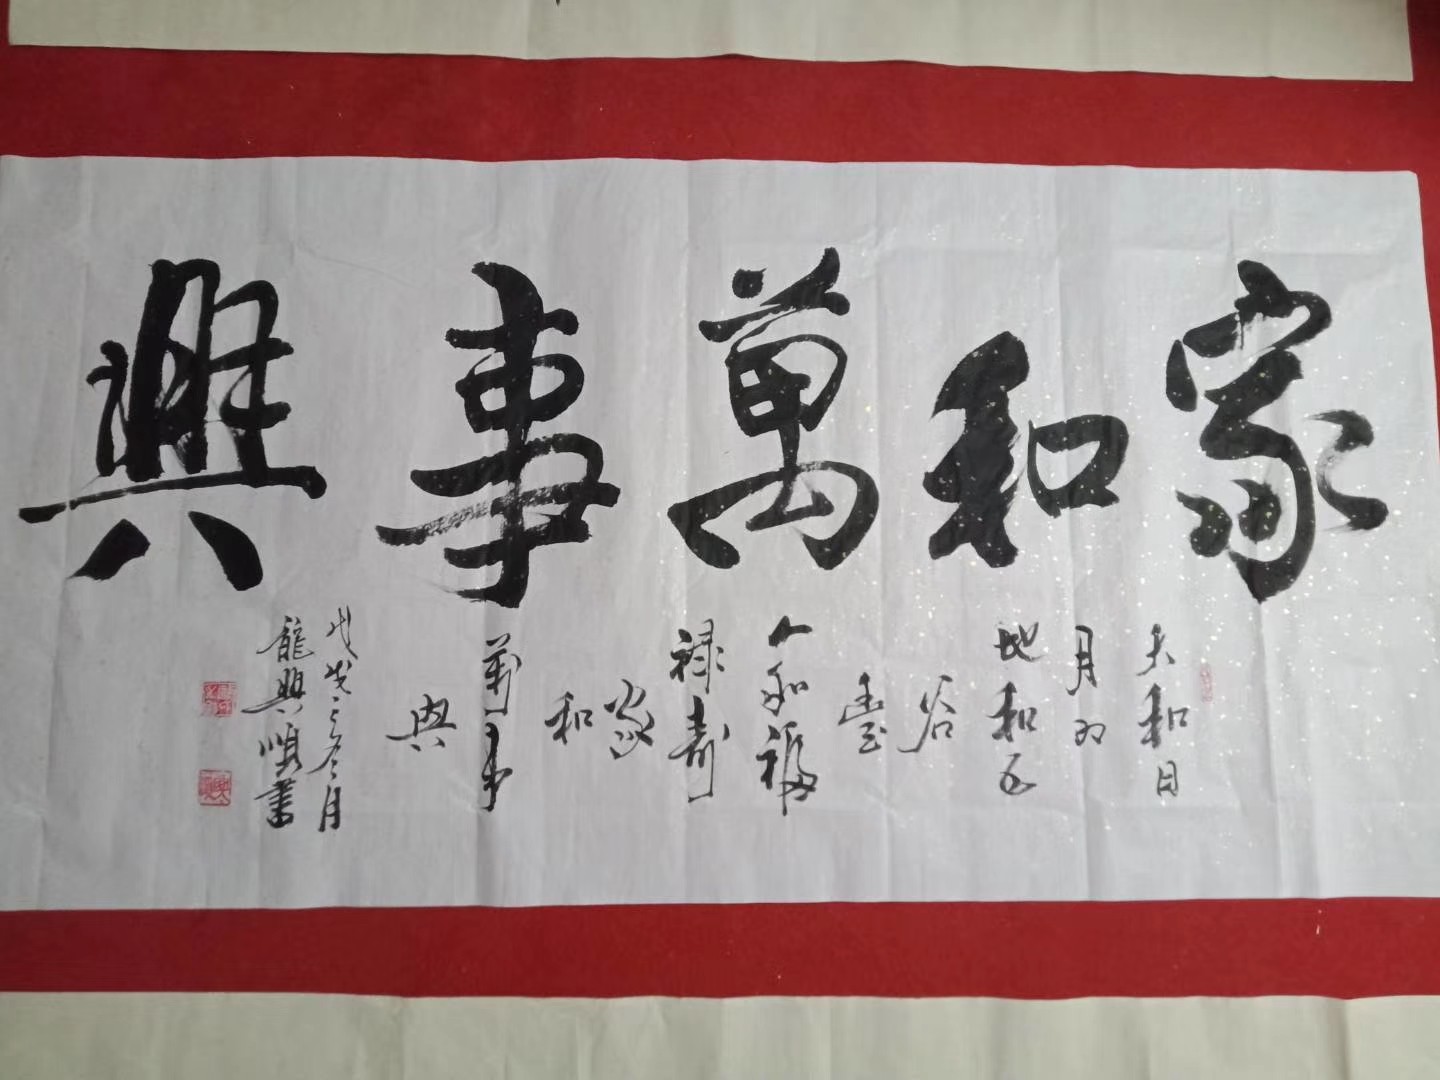 家和萬事興
天和日
月明
地和五
谷
豊
人和福
禄壽
家
和
萬事
興
戊戌之冬月
龍興順書